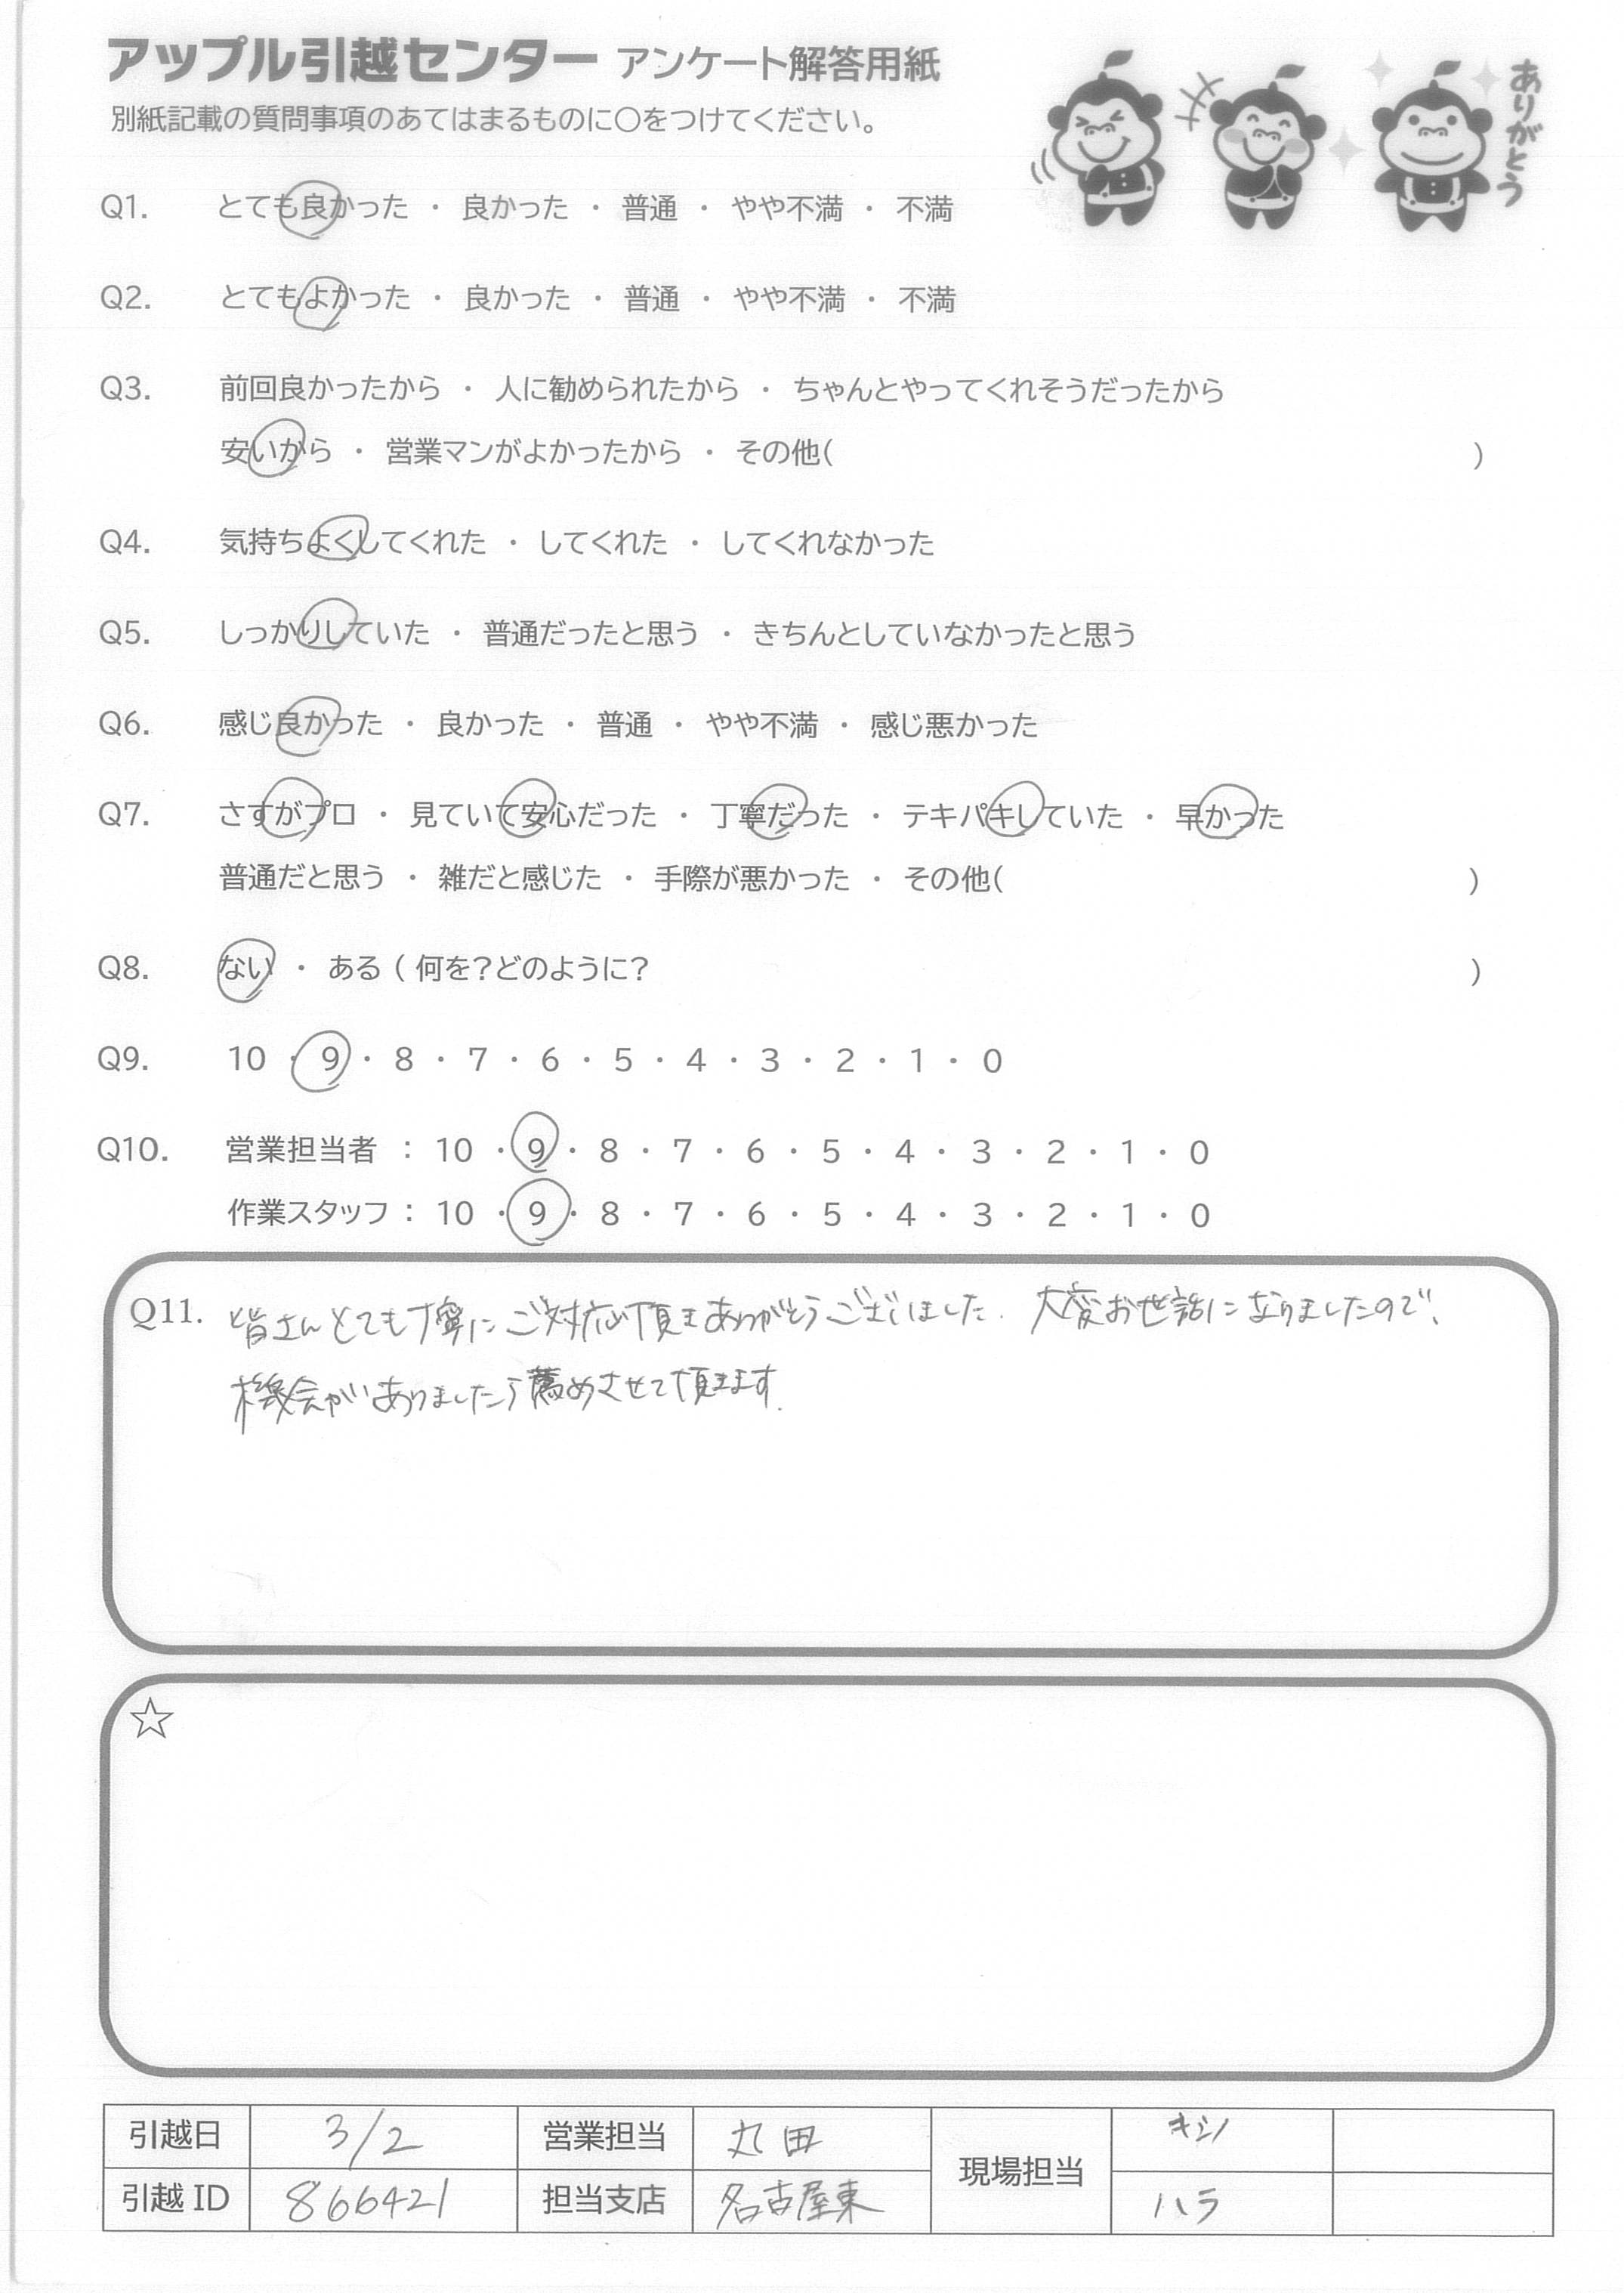 アップル引越センター アンケート解答用紙
別紙記載の質問事項のあてはまるものに○をつけてください。
ありがとう
Q1. とても良かった ・ 良かった ・ 普通 ・ やや不満 ・ 不満
Q2. とてもよかった ・ 良かった ・ 普通 ・ やや不満 ・ 不満
Q3. 前回良かったから ・ 人に勧められたから ・ ちゃんとやってくれそうだったから
安いから ・ 営業マンがよかったから ・ その他( )
Q4. 気持ちよくしてくれた ・ してくれた ・ してくれなかった
Q5. しっかりしていた ・ 普通だったと思う ・ きちんとしていなかったと思う
Q6. 感じ良かった ・ 良かった ・ 普通 ・ やや不満 ・ 感じ悪かった
Q7. さすがプロ ・ 見ていて安心だった ・ 丁寧だった ・ テキパキしていた ・ 早かった
普通だと思う ・ 雑だと感じた ・ 手際が悪かった ・ その他( )
Q8. ない ・ ある ( 何を?どのように? )
Q9. 10 ・ 9 ・ 8 ・ 7 ・ 6 ・ 5 ・ 4 ・ 3 ・ 2 ・ 1 ・ 0
Q10. 営業担当者 : 10 ・ 9 ・ 8 ・ 7 ・ 6 ・ 5 ・ 4 ・ 3 ・ 2 ・ 1 ・ 0
作業スタッフ : 10 ・ 9 ・ 8 ・ 7 ・ 6 ・ 5 ・ 4 ・ 3 ・ 2 ・ 1 ・ 0
Q11. 皆さんとても丁寧にご対応頂きありがとうございました. 大変お世話になりましたので、
機会がありましたら薦めさせて頂きます.
☆
引越日 3/2 営業担当 丸田 現場担当 キシノ
引越 ID 866421 担当支店 名古屋東 ハラ